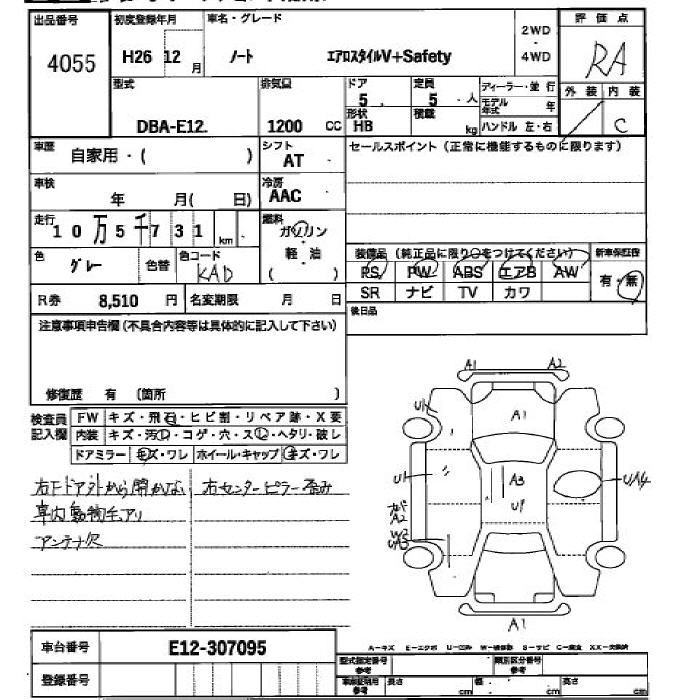 出品番号 初度登録年月 車名・グレード 2WD ・ 4WD 評価点
4055 H26 12月 ノート エアロスタイルV+Safety RA
型式 排気量 ドア 定員 ディーラー・並行 外装 内装
DBA-E12. 1200 CC 5 . 5 . 人 モデル年式 年 C
形状 HB 積載 kg ハンドル 左・右
車歴 自家用・( ) シフト AT セールスポイント(正常に機能するものに限ります)
車検 年 月( 日) 冷房 AAC
走行 10万5千731 km 燃料 ガソリン
軽・油
( )
色 グレー 色替 色コード KAD
装備品(純正品に限り○をつけてください) 新車保証書
PS PW ABS エアB AW 有・無
SR ナビ TV カワ
R券 8,510 円 名変期限 月 日
後日品
注意事項申告欄(不具合内容等は具体的に記入して下さい)
修復歴 有 (箇所 )
検査員記入欄 FW キズ・飛石・ヒビ割・リペア跡・X要
内装 キズ・汚レ・コゲ・穴・スレ・ヘタリ・破レ
ドアミラー キズ・ワレ ホイール・キャップ キズ・ワレ
右Fドア外から開かない 右センターピラー歪み
車内動物毛アリ
アンテナ欠
A1 A2
U1 A1
U1 A3 UA4
U9
A2
W2
UA3
A1
車台番号 E12-307095
登録番号
A-キズ E-エクボ U-凹み W-補修跡 S-サビ C-腐食 XX-交換済
型式指定番号 参考 類別区分番号 参考
車庫証明用 参考 長さ cm 幅 cm 高さ cm